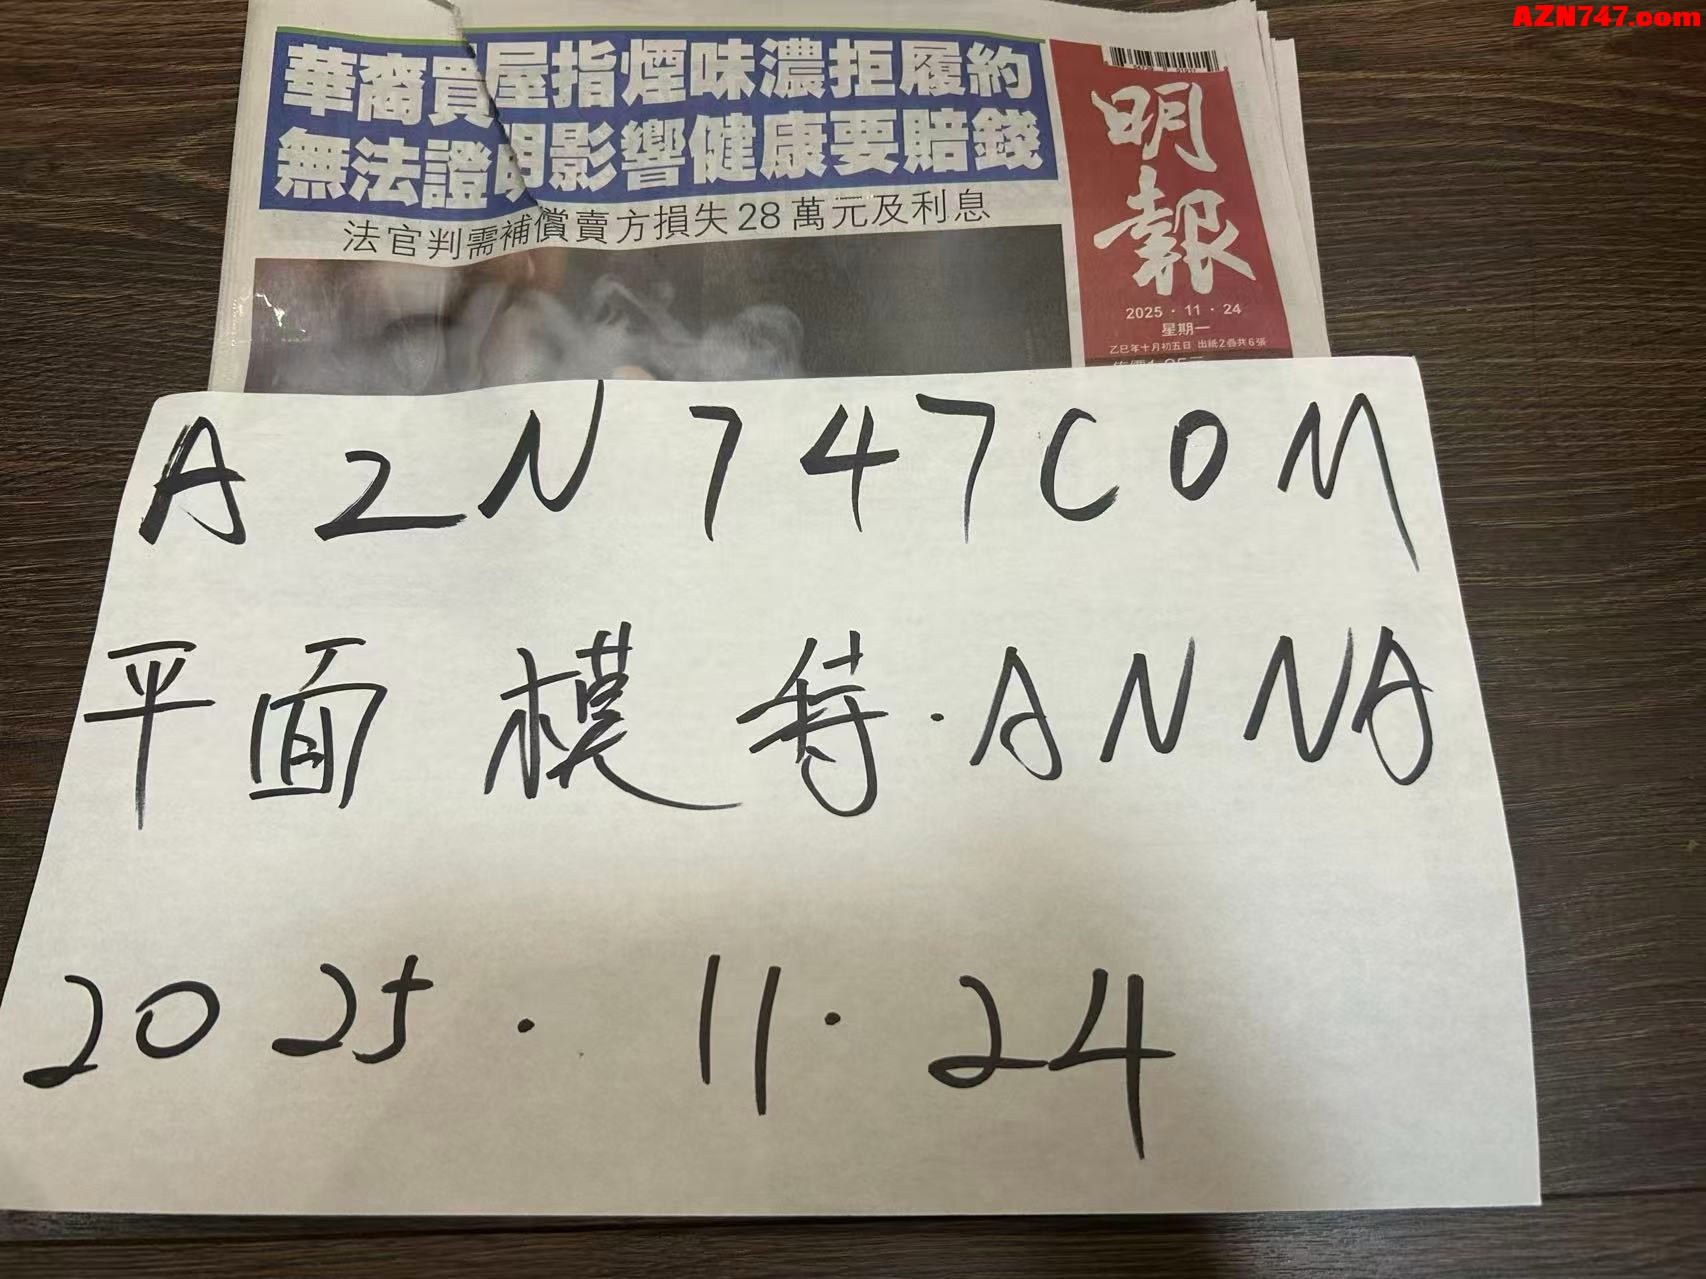 AZN747.com
華裔買屋指煙味濃拒履約
無法證明影響健康要賠錢
法官判需補償賣方損失28萬元及利息
明報
2025·11·24
星期一
乙巳年十月初五日 出紙2疊共6張
AZN747COM
平面模特·ANNA
2025·11·24